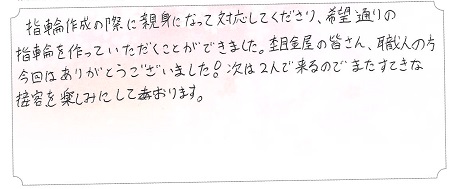 指輪作成の際に親身になって対応してくださり、希望通りの
指輪を作っていただくことができました。杢目金屋の皆さん、職人の方
今回はありがとうございました!次は2人で来るのでまたすてきな
接客を楽しみにしております。